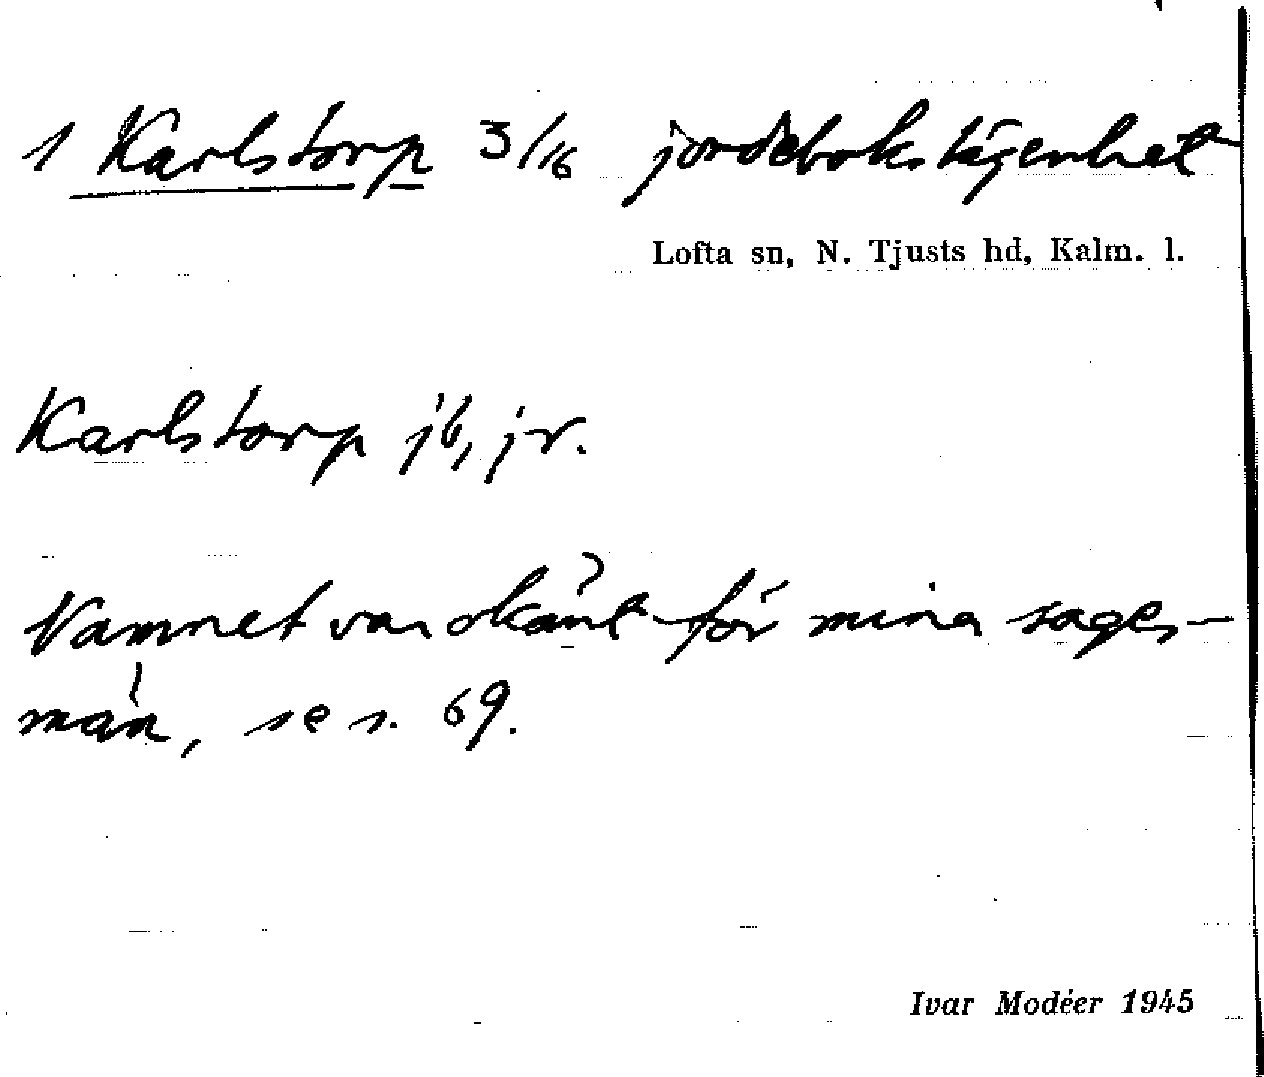 1 Karlstorp 3/16 jordebokslägenhet
Lofta sn, N. Tjusts hd, Kalm. l.
Karlstorp jb, jr.
Namnet var okänt för mina sages-
män, se s. 69.
Ivar Modéer 1945